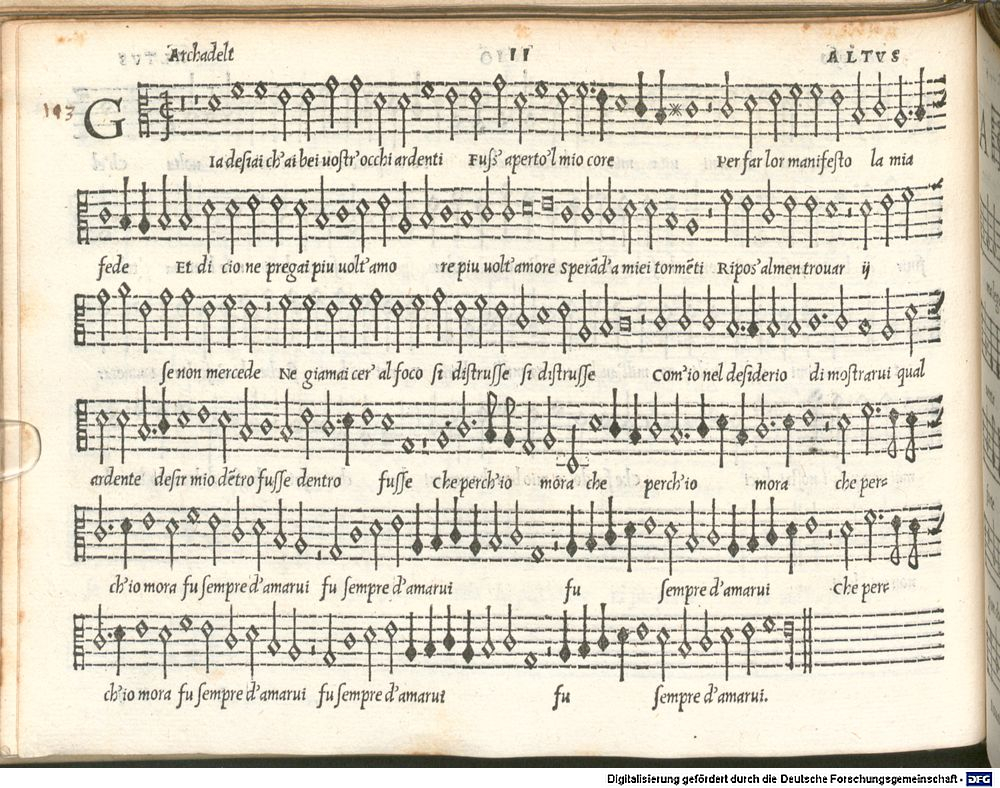 Archadelt II ALTVS
193
G
Ia desiai ch'ai bei uostr' occhi ardenti Fuss' aperto'l mio core Per far lor manifesto la mia
fede Et di cio ne pregai piu uolt' amo re piu uolt' amore Sperād' a miei tormēti Ripos' almen trouar ij
se non mercede Ne giamai cer' al foco si distrusse si distrusse Com'io nel desiderio di mostrarui qual
ardente desir mio dētro fusse dentro fusse Che perch'io mora che perch'io mora che per=
ch'io mora fu sempre d'amarui fu sempre d'amarui fu sempre d'amarui Che per=
ch'io mora fu sempre d'amarui fu sempre d'amarui fu sempre d'amarui.
Digitalisierung gefördert durch die Deutsche Forschungsgemeinschaft - DFG